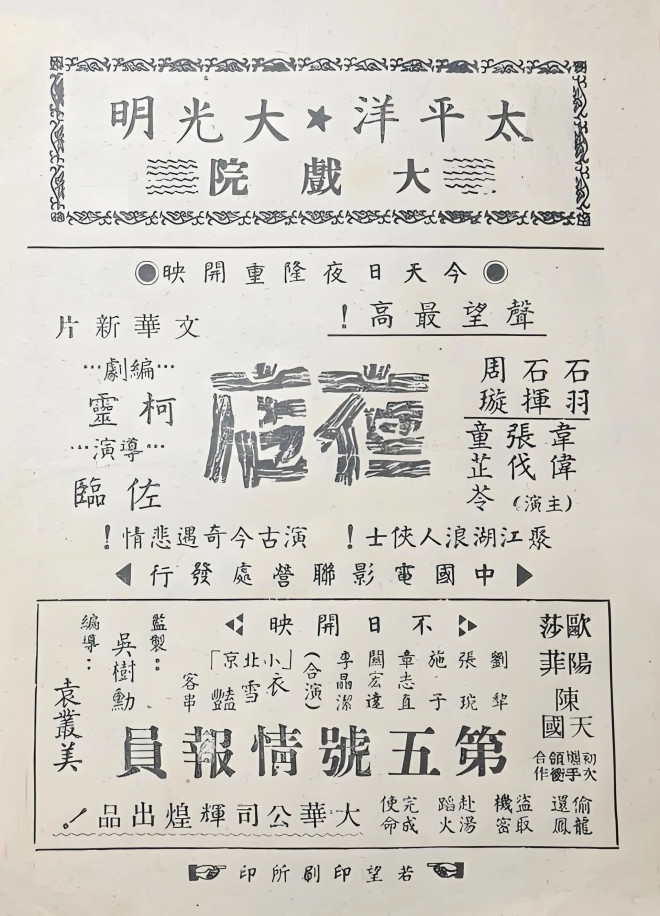 太平洋★大光明
大戲院
今天日夜隆重開映
聲望最高！
文華新片
石羽
石揮
周璇
韋偉
張伐
童芷苓
(主演)
夜店
…編劇…
柯靈
…導演…
佐臨
聚江湖浪人俠士！ 演古今奇遇悲情！
中國電影聯營處發行
不日開映
歐陽莎菲
陳天國
初次攜手領銜合作
劉犁
張琬
施子
章志直
關宏達
李晶潔
(合演)
「小北京」
衣雪豔
客串
第五號情報員
監製：吳樹勳
編導：袁叢美
偷龍還鳳
盜取機密
赴湯蹈火
完成使命
大華公司輝煌出品！
若望印刷所印